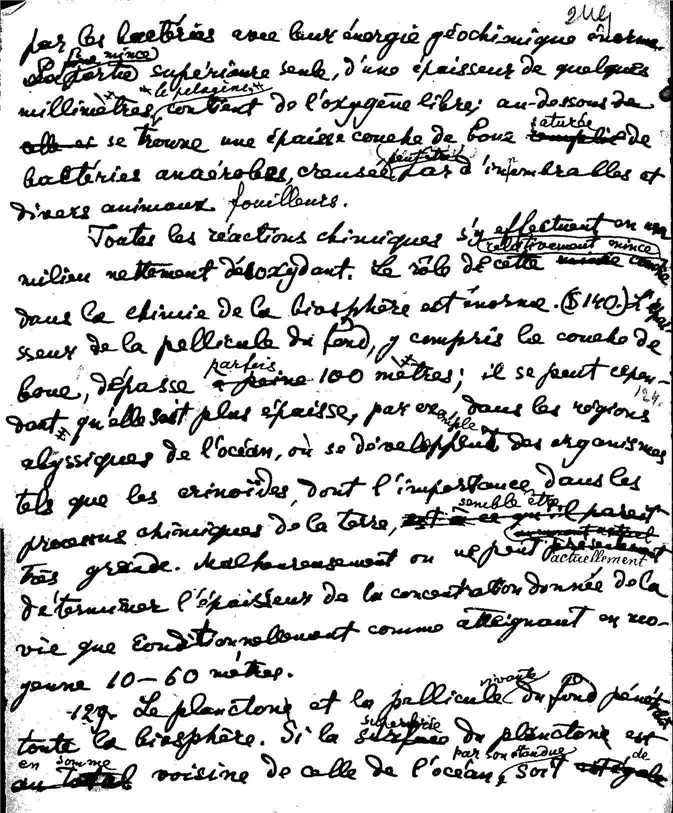 249
par les bactéries avec leur énergie géochimique énorme.
Une mince
La partie supérieure seule, d'une épaisseur de quelques
le pelogène
millimètres, contient de l'oxygène libre; au-dessous de
saturée
elle se trouve une épaisse couche de boue remplie de
peut-être
bactéries anaérobes, creusée par d'innombrables et
divers animaux fouilleurs.
Toutes les réactions chimiques s'y effectuent en un
relativement mince
milieu nettement désoxydant. Le rôle de cette mince couche
dans la chimie de la biosphère est énorme. (§ 140.) L'épais-
sseur de la pellicule du fond, y compris la couche de
parfois
boue, dépasse à peine 100 mètres; il se peut cepen-
124.
dant qu'elle soit plus épaisse, par exemple dans les régions
abyssiques de l'océan, où se développent des organismes
tels que les crinoïdes, dont l'importance, dans les
semble être
processus chimiques de la terre, est à ce qu'il parait
très grande. Malheureusement on ne peut présentement
actuellement
déterminer l'épaisseur de la concentration donnée de la
vie que conditionnellement comme atteignant en mo-
yenne 10-60 mètres.
vivante
129. Le planctone et la pellicule du fond pénètr
superficie
toute la biosphère. Si la surface du planctone est
en somme par son étendue de
au total voisine de celle de l'océan, soit égale